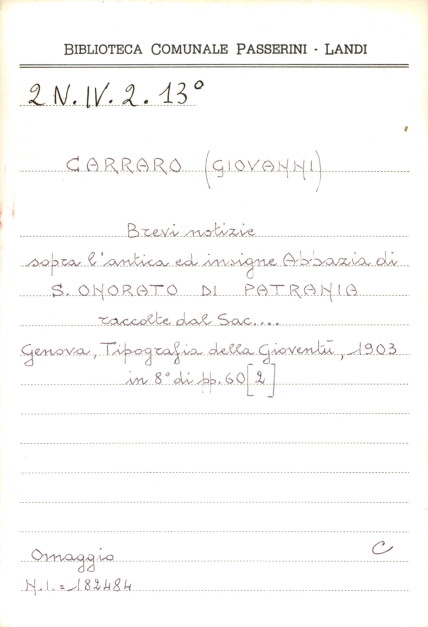 BIBLIOTECA COMUNALE PASSERINI - LANDI
2 N. IV. 2. 13°
CARRARO (GIOVANNI)
Brevi notizie
sopra l'antica ed insigne Abbazia di
S. ONORATO DI PATRANIA
raccolte dal Sac....
Genova, Tipografia della Gioventù, 1903
in 8° di pp. 60 [2]
Omaggio
C
N.I. = 182484